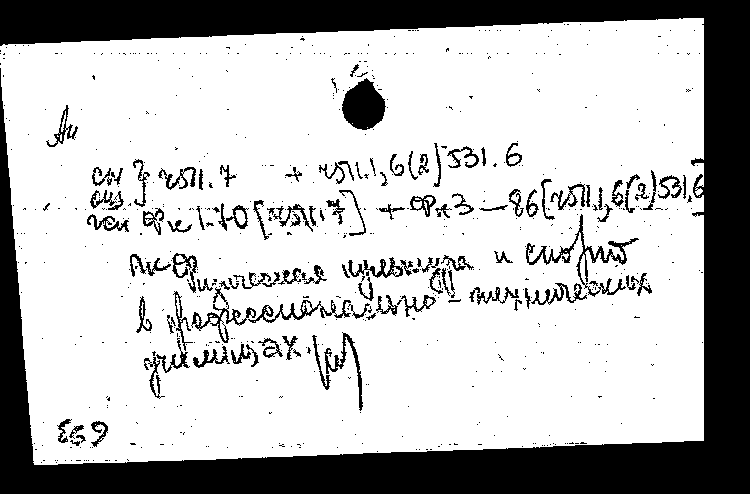 Ан
сн } ч511.7 + ч511.1,6(2)531.6
ген ФК 1.70 [ч511.7] + ФК 3-86 [ч511.1,6(2)531.6
Физическая культура и спорт
в профессионально-технических
училищах.